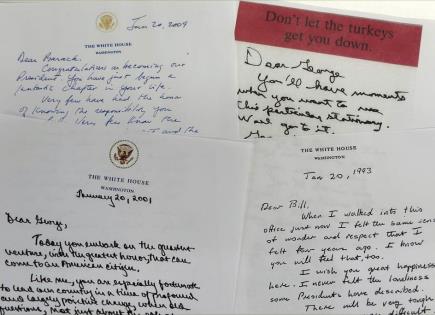 THE WHITE HOUSE
WASHINGTON
Jan 20, 2009
Dear Barack,
Congratulations on becoming our
President. You have just begun a
fantastic chapter in your life.
Very few have had the honor
of knowing the responsibility you
Very few know the
and the
Don't let the turkeys
get you down.
Dear George
You'll have moments
when you want to use
this particular stationery.
Well go to it.
THE WHITE HOUSE
WASHINGTON
January 20, 2001
Dear George,
Today you embark on the greatest
venture, with the greatest honor, that can
come to an American citizen.
Like me, you are especially fortunate
to lead our country in a time of profound
and largely positive change, when old
questions, not just about the role of
THE WHITE HOUSE
WASHINGTON
Jan 20, 1993
Dear Bill,
When I walked into this
office just now I felt the same sense
of wonder and respect that I
felt four years ago. I know
you will feel that, too.
I wish you great happiness
here. I never felt the loneliness
some Presidents have described.
There will be very tough
difficult